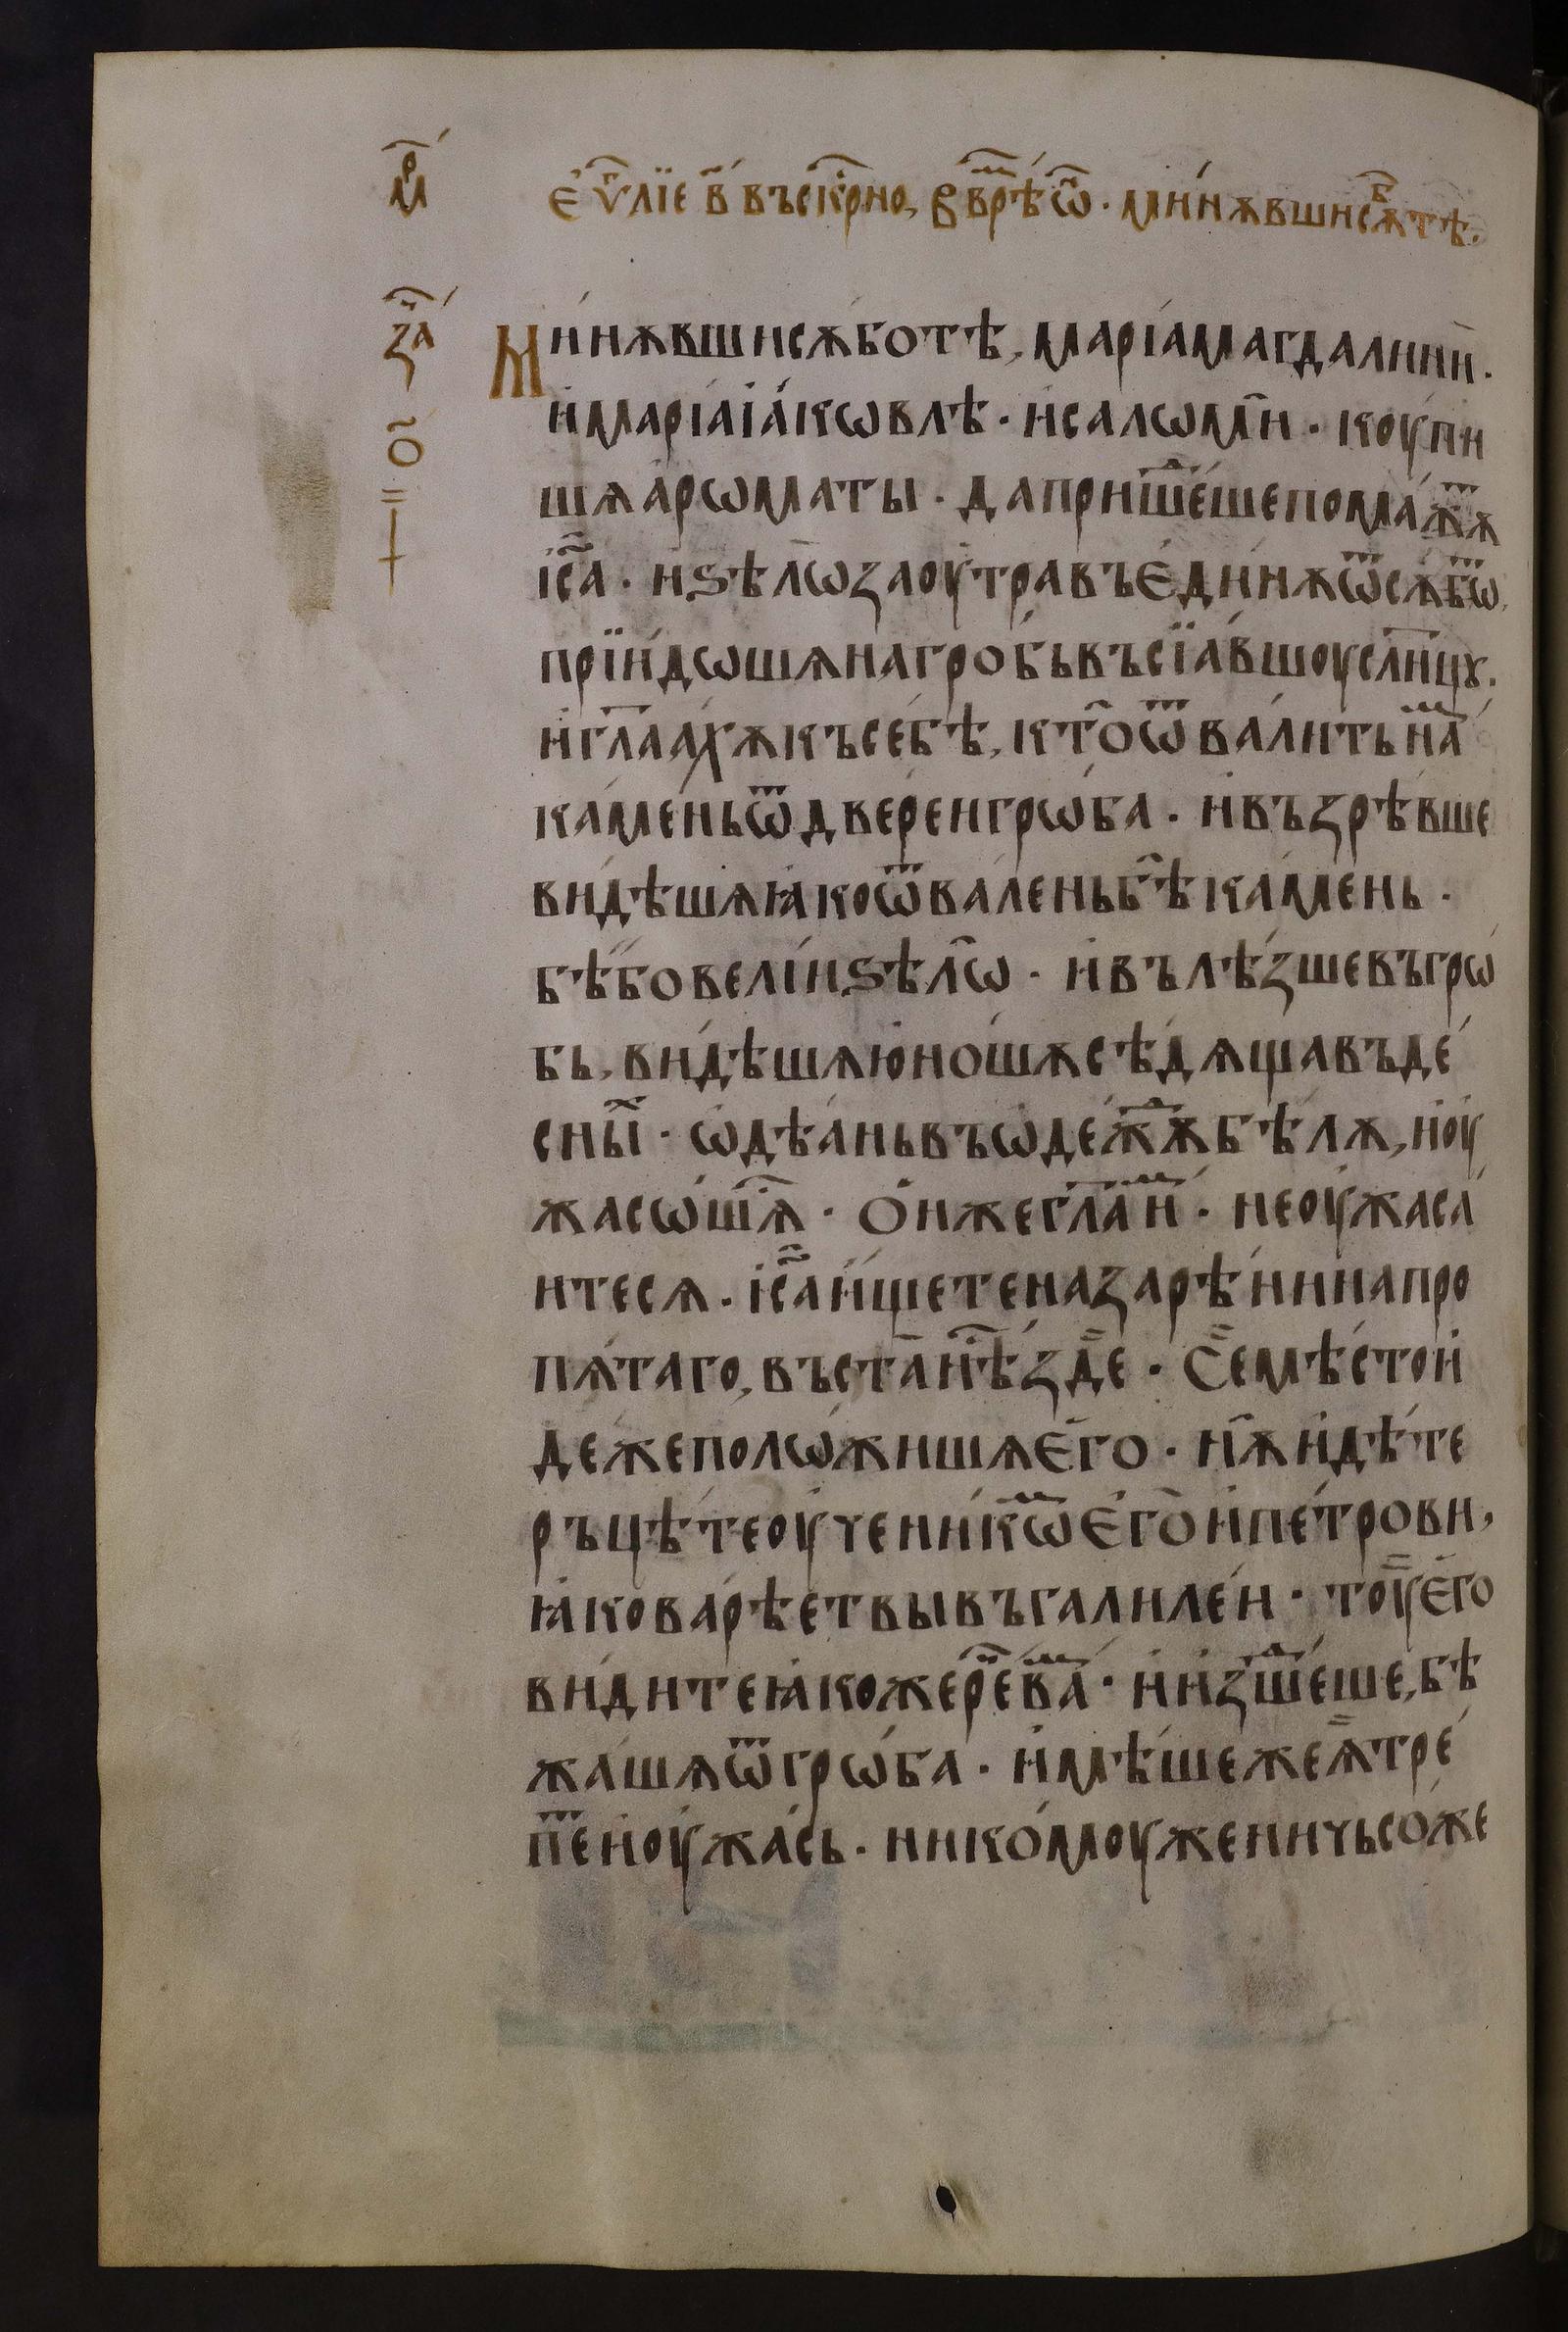 м҃р
є҆ѵⷢ҇лїе в҃ въск҃рно, в҃ врⷨѣ ѡⷩ҇ · мин́ѫвши сѫⷠтѣ.
заⷱ҇
о҃
Мин́ѫвши сѫ́ботѣ, марїа магдалини ·
и҆ марїа їа́кѡвлѣ · и҆ салѡмїи · коупи
шѧ а҆рѡматы · да пришеⷣше помаⷤѫⷮ
і҆с҃а · и҆ ѕѣлѡ̀ заоутра въ є҆динѫ ѿ сѫбѡⷮ,
прїидѡшѧ на гробь въсїа́вшоу сл҃нцꙋ.
и҆ гл҃аахѫ къ себѣ, кто̀ ѿвалить наⷨ
камень ѿ двереи грѡба · и҆ възрѣвше
видѣшѧ ꙗко ѿвалень бѣ̀ камень ·
бѣ бо велїи ѕѣлѡ̀ · и҆ вълѣзше въ грѡ
бь, видѣшѧ юношѫ сѣдѧща въ де
сныⷯ · ѡ҆дѣань въ ѡ҆деⷤдѫ бѣлѫ, и҆ оу
жасѡшѧⷭ҇ · О҆н же гл҃а иⷨ · не оужаса
итесѧ · і҆с҃а и҆щете назарѣнина про
пѧтаго, въста нⷭ҇ѣ зде · Се мѣсто и҆
деже полѡжишѧ є҆го · нѫ̀ и҆дѣте
ръцѣте оученикѡⷨ є҆го и҆ петрови,
ꙗко варѣет вы въ галилеи · тоу є҆го
видите ꙗкоже реⷱ҇ ваⷨ · и҆ и҆зшеⷣше, бѣ
жашѧ ѿ грѡба · и҆мѣше же ѧ̀ тре
пеⷮ и҆ оужась · никомоуже ничьсоже